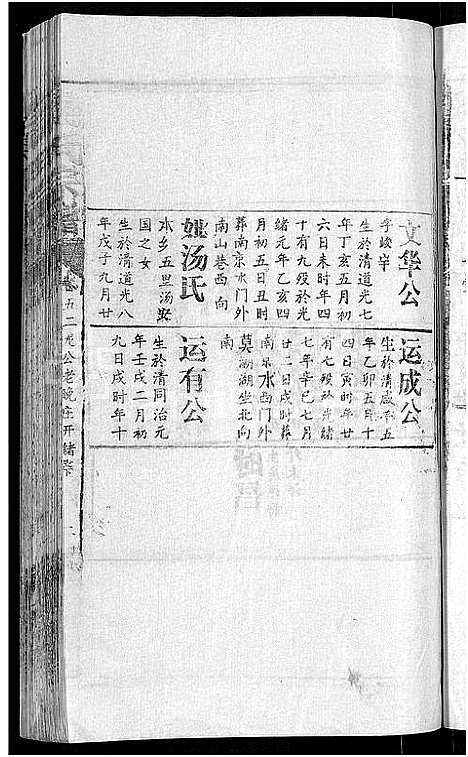 文华公
字峻宇
生於清道光七
年丁亥五月初
六日未时年四
十有九殁於光
绪元年乙亥四
月初五日丑时
葬南京水门外
南山巷西向
妣汤氏
本乡五里汤
国之女
生於清道光八
年戊子九月廿
运成公
生於清咸丰五
年乙卯五月十
四日寅时年廿
有七殁於光绪
七年辛巳七月
廿二日戌时葬
南京水西门外
莫湖湖坐北向
南
运有公
生於清同治元
年壬戌二月初
九日戌时年十
卷五二龙公老晚庄开绪